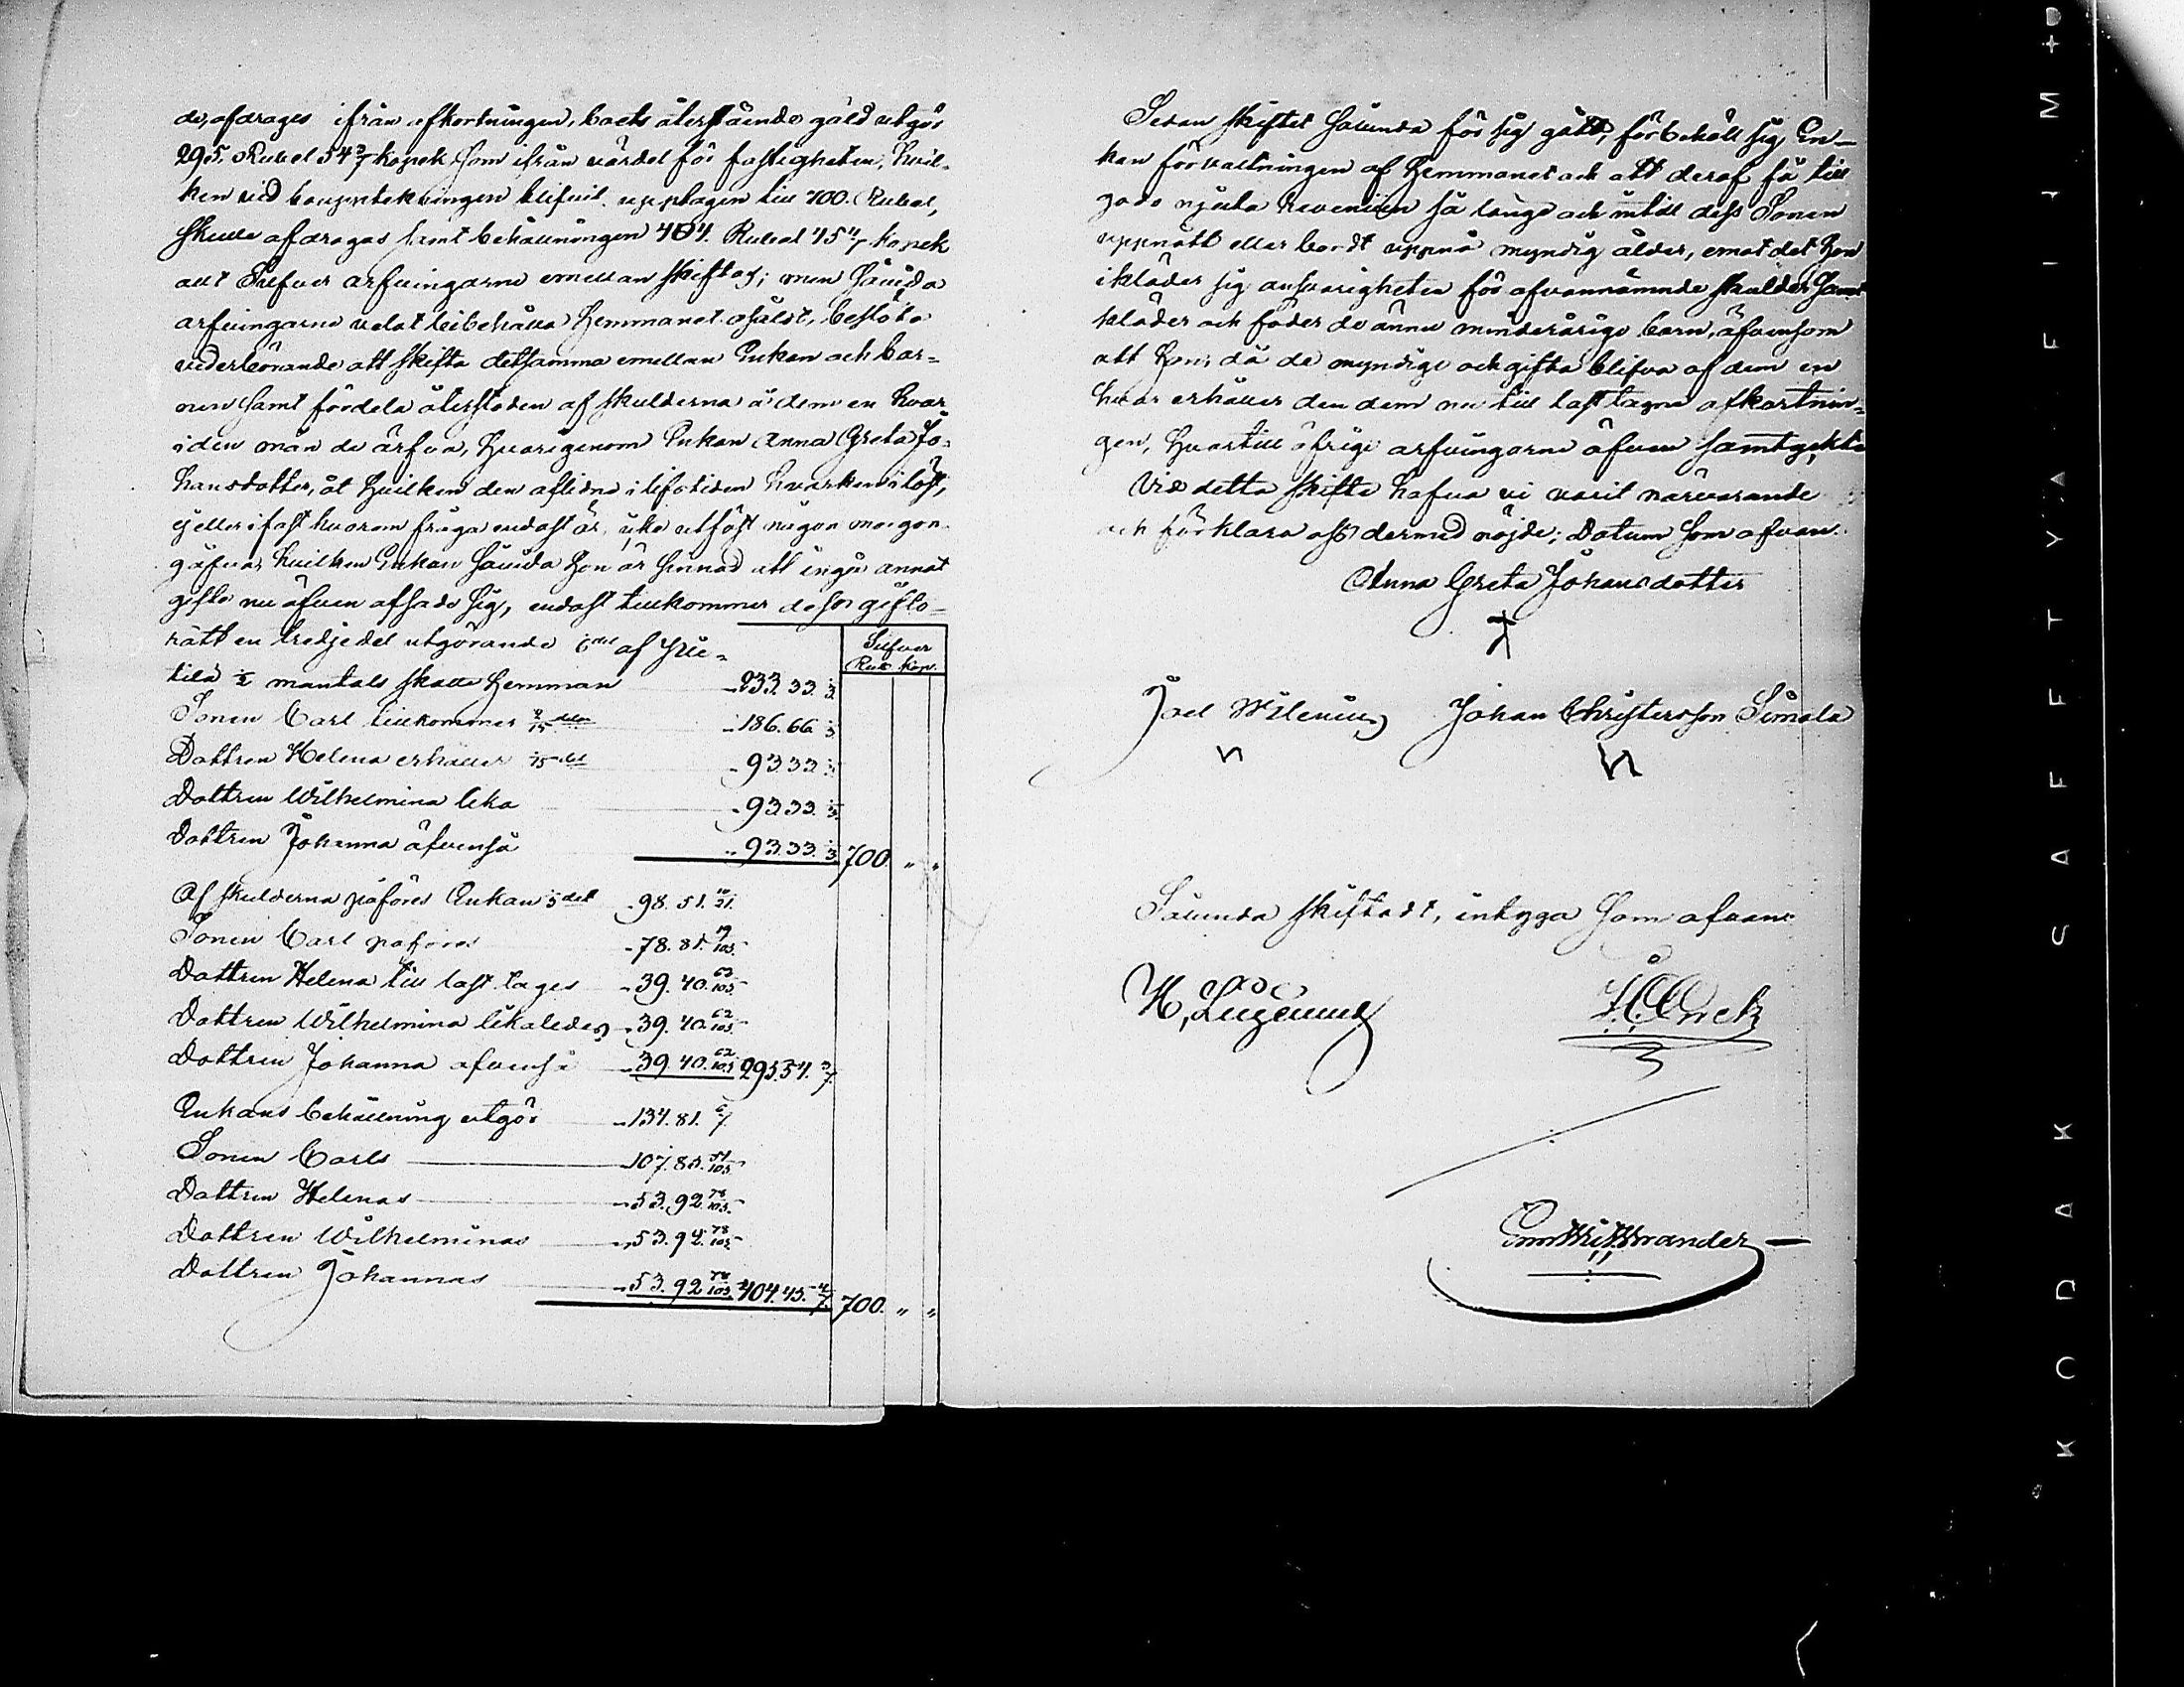 de, afdrages ifrån afkortningen, boets återstående gäld utgör
295. Rubel 54 3/7 kopek som ifrån värdet för fastigheten, hvil-
ken vid bouppteckningen blifvit upptagen till 700. Rubel,
skulle afdragas samt behållningen 404. Rubel 45 4/7 kopek
allt Silfver arfvingarne emellan skiftas; men såvida
arfvingarne velat bibehålla Hemmanet osåldt, beslöto
vederbörande att skifta detsamma emellan Enkan och bar-
nen samt fördela återstoden af skulderna å dem en hvar
i den mån de ärfva, hvarigenom Enkan Anna Greta Jo-
hansdotter, åt hvilken den aflidne i lifstiden hvarken i löst,
ej eller i fast hvarom fråga endast är, icke utfäst någon morgon-
gåfva, hvilken Enkan såvida hon är sinnad att ingå annat
gifte nu äfven afsade sig, endast tillkommer dess gifto-
rätt en tredjedel utgörande del af
tilä 1/2 mantals skatte Hemman - 233. 33. 1/3
Silfver
Rub. kop.
Sonen Carl tillkommer 4/15 delar - 186. 66
Dottren Helena erhåller 2/15 del - 93. 33. 1/3
Dottren Wilhelmina lika - 93. 33. 1/3
Dottren Johanna äfvenså - 93. 33. 1/3 700. " "
Af skulderna påföres Enkan del - 98. 51. 10/21
Sonen Carl påföres - 78. 81. 19/105
Dottren Helena till last tages - 39. 40. 62/105
Dottren Wilhelmina likaledes - 39. 40. 62/105
Dottren Johanna äfvenså - 39. 40. 62/105 295. 54. 3/7
Enkans behållning utgör - 134. 81. 6/7
Sonen Carls - 107. 85. 51/105
Dottren Helenas - 53. 92. 78/105
Dottren Wilhelminas - 53. 92. 78/105
Dottren Johannas - 53. 92. 78/105 404. 45. 4/7 700. " "
Sedan skiftet sålunda för sig gått, förbehöll sig En-
kan förvaltningen af Hemmanet och att deraf få till
godo njuta revenüen så länge och intill dess Sonen
uppnått eller bordt uppnå myndig ålder, emot det hon
ikläder sig ansvarigheten för ofvannämnde skulder samt
kläder och föder de ännu minderårige barn, äfvensom
att hon, då de myndige och gifta blifva af dem en
hvar erhåller den dem nu till last tagne afkortnin-
gen, hvartill öfrige arfvingarne äfven samtyckte
Vid detta skifte hafva vi varit närvarande
och förklara oss dermed nöjde; Datum som ofvan.
Anna Greta Johansdotter
Joel Johan Christersson Simola
Sålunda skiftadt, intyga som ofvan
KODAK SAFETY A FILM